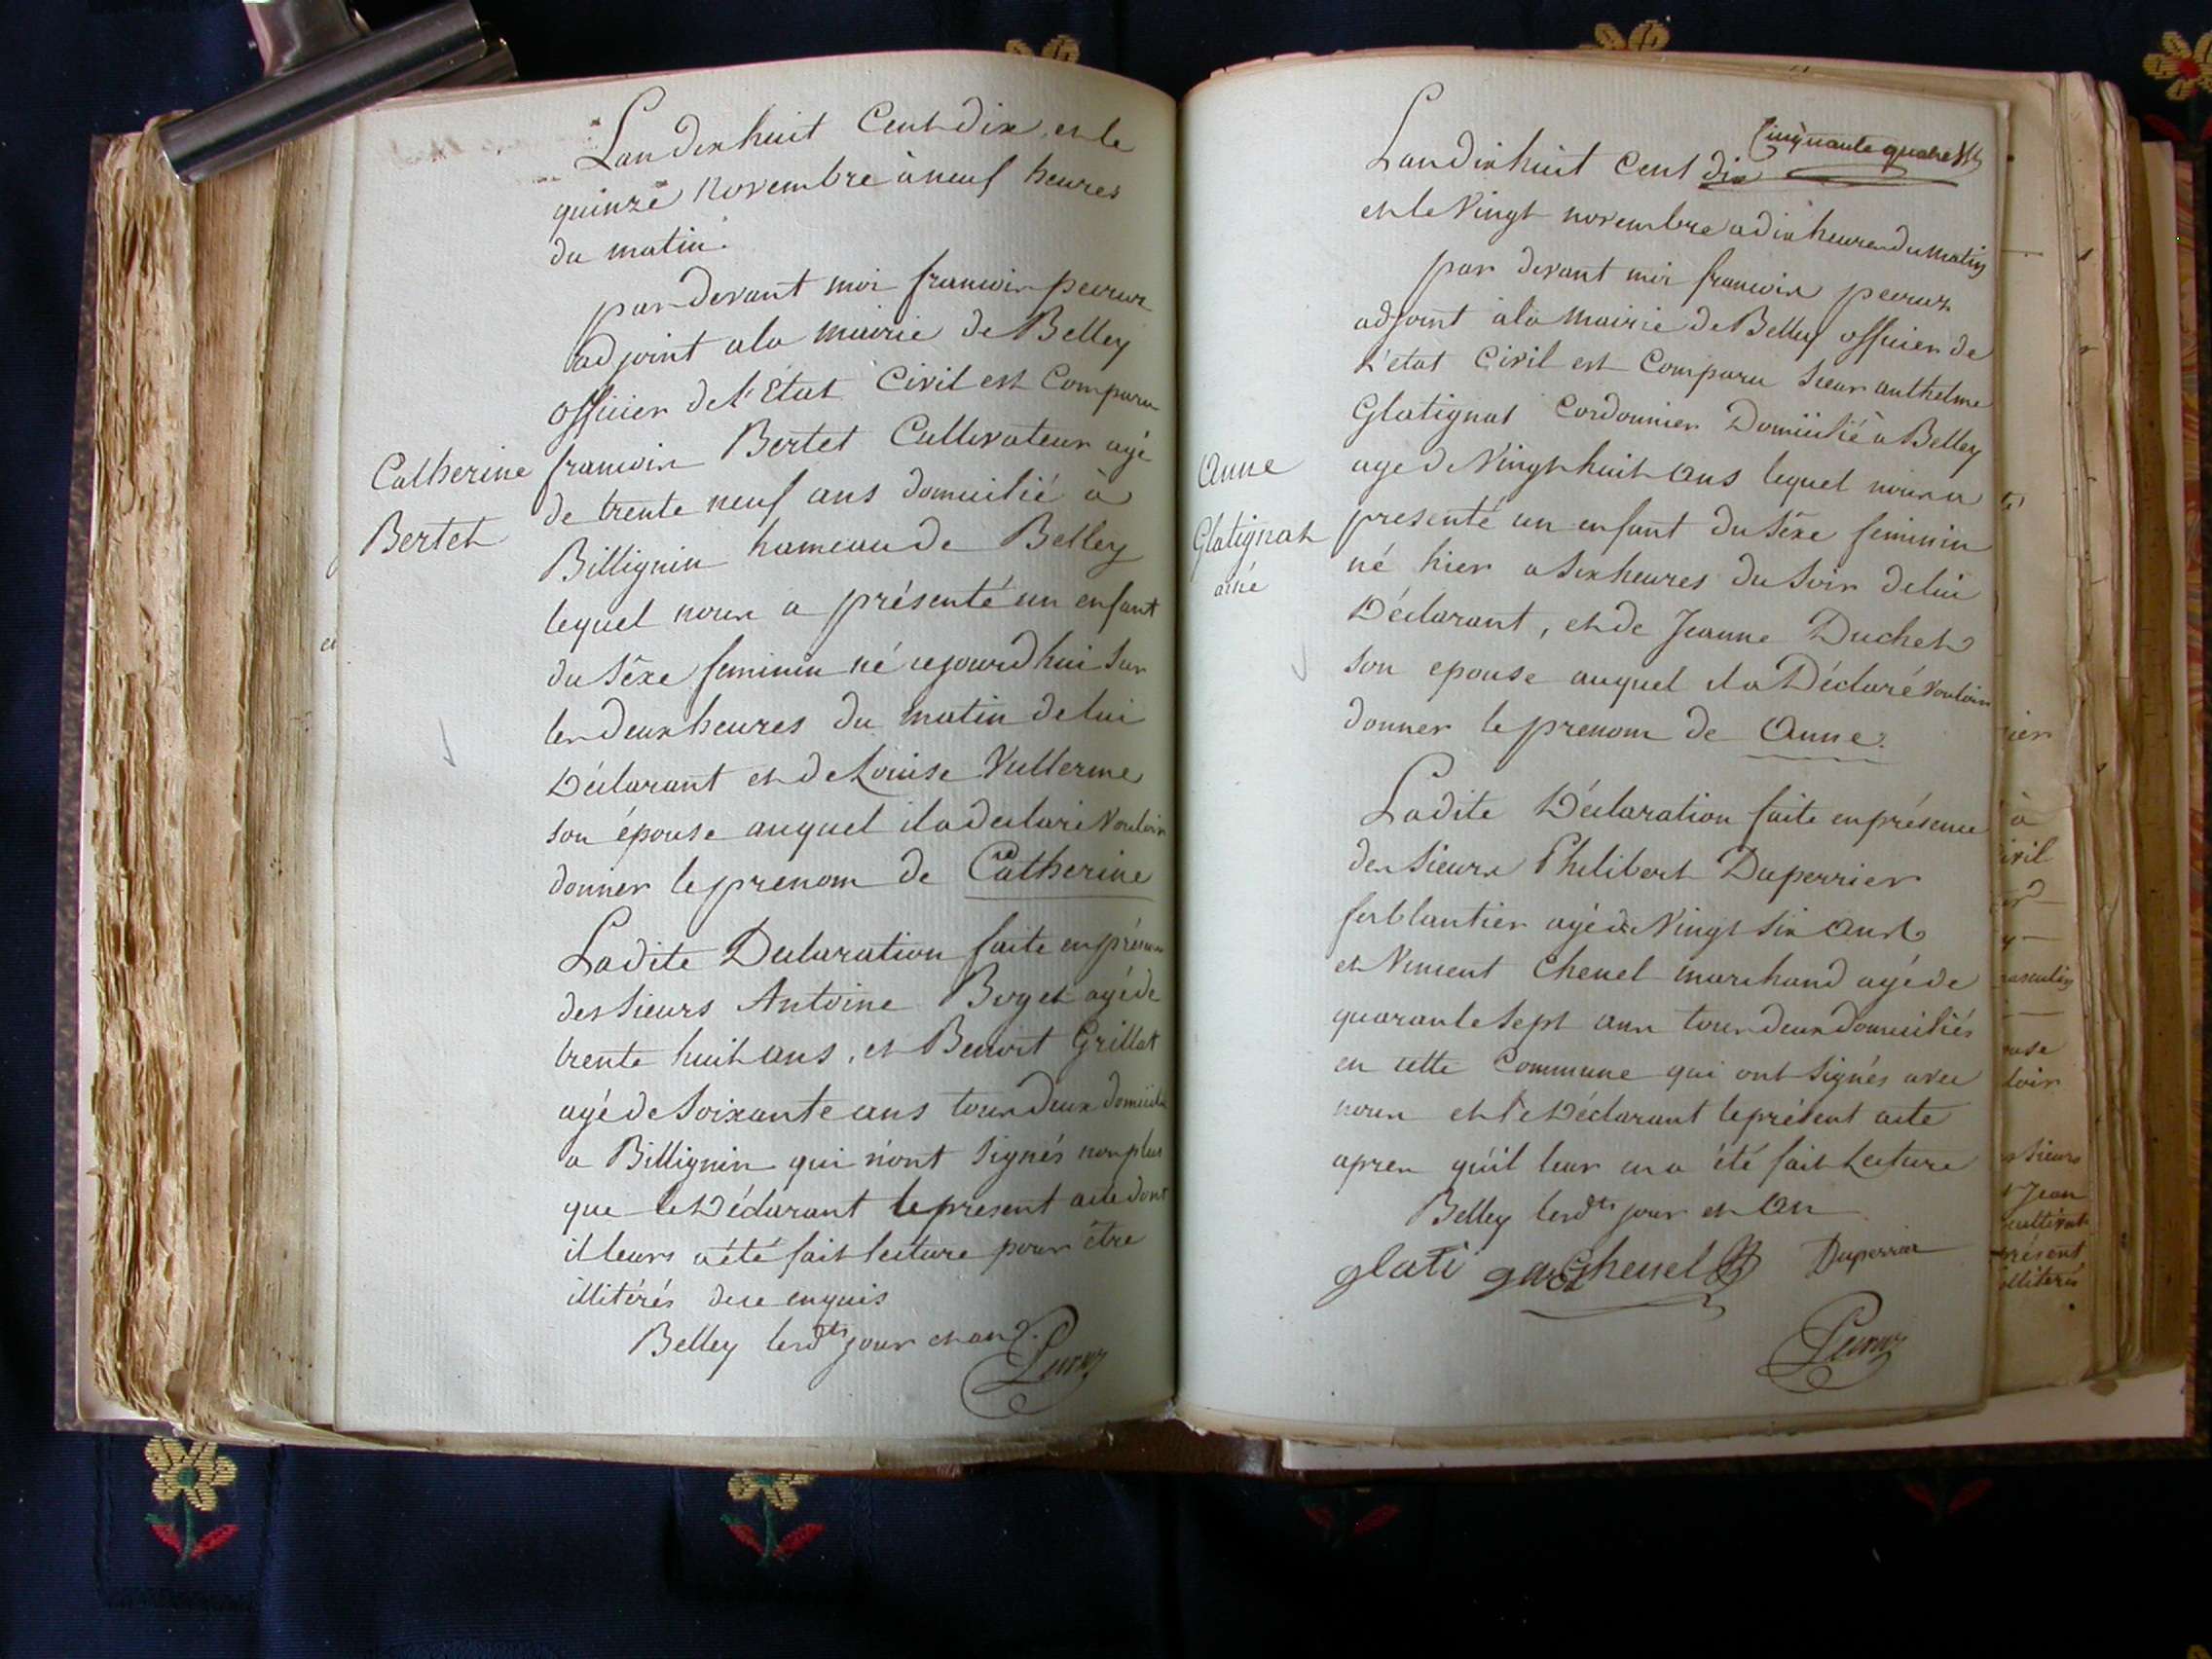 Lan dix huit Cent dix, et le
quinze novembre à neuf heures
du matin.
par devant moi francois peuruz
adjoint ala mairie de Belley
officier de l'Etat Civil est Comparu
Catherine
Bertet
francois Bertet Cultivateur agé
de trente neuf ans domicilié à
Billignin hameau de Belley
lequel nous a présenté un enfant
du sêxe feminin né cejourdhui sur
les deux heures du matin de lui
Déclarant et de Louise Vullerme
son épouse auquel il a declaré vouloir
donner le prenom de Catherine
Ladite Declaration faite en présence
des sieurs Antoine Boget agé de
trente huit ans, et Benoit Grillat
agé de soixante ans tous deux domicilié
a Billignin qui n'ont signés non plus
que le Déclarant le present acte dont
il leurs a été fait lecture pour être
illitérés de ce enquis
Belley lesd.ts jour et an.
Cinquante quatre
Lan dix huit Cent dix
et le Vingt novembre a dix heures du matin
par devant moi francois peuruz
adjoint à la Mairie de Belley officier de
L'etat Civil est Comparu sieur anthelme
Glatignat Cordonnier Domicilié a Belley
Anne
Glatignat
ainé
age de Vingt huit ans lequel nous a
presenté un enfant du sêxe feminin
né hier a six heures du soir de lui
Déclarant, et de Jeanne Duchet
son epouse auquel il a Déclaré Vouloir
donner le prenom de Anne.
Ladite Déclaration faite en présence
des sieurs Philibert Duperrier
ferblantier agé de Vingt six ans
et Vincent Chenel marchand agé de
quarante sept ans tous deux domiciliés
en cette Commune qui ont signés avec
nous et le Déclarant le présent acte
apres qu'il leur en a été fait Lecture
Belley lesd.ts jour et an
glati gna Chenel Duperrier